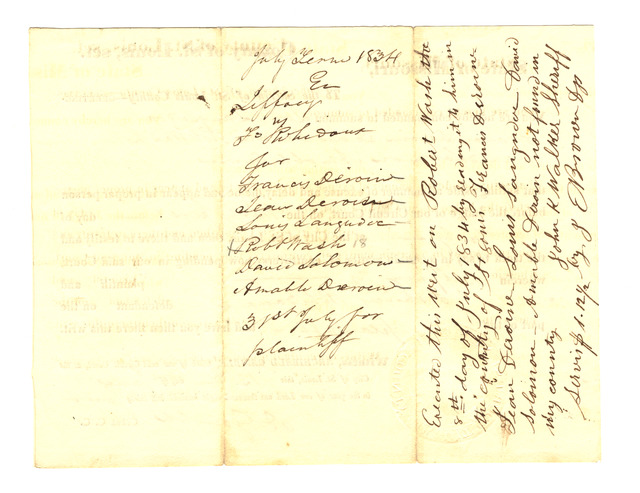 July Term 1834
Jeffrey
vs
for
Francis Deroin
Jean Deroin
Louis Languedoc
Robt Wash
David Solomon
Amable Deroin
31st July for
plaintiff
Executed this writ on Robert Wash the
8th day of July 1834 by reading it to him in
the County of St Louis Francis Deroine
Jean Deroine Louis Langudoc David
Solomon – Amable Deroin not found in
my county John K Walker Sheriff
Service 1.12½ by J Brown DS